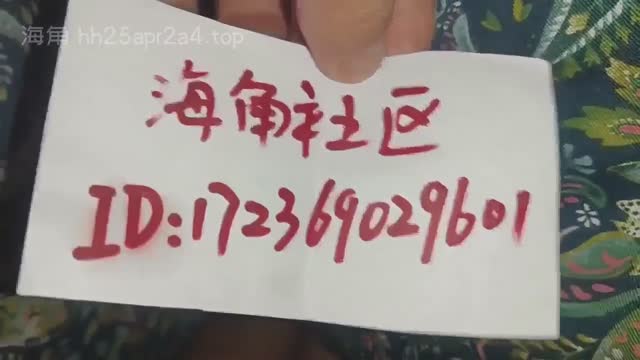 海角 hh25apr2a4.top
海角社区
ID:172369029601